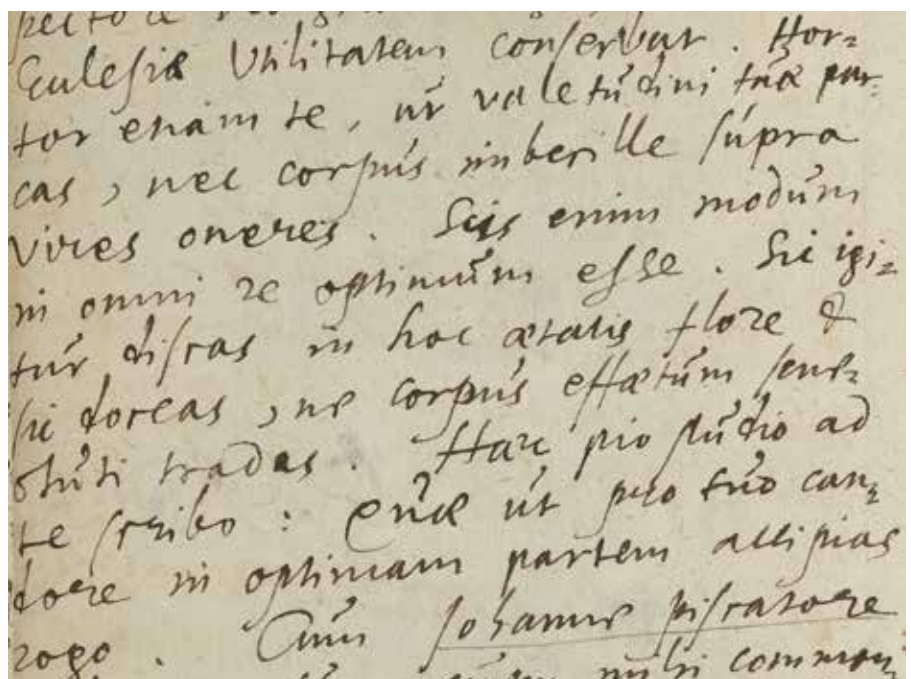 pectore
Ecclesiæ Utilitatem conservat. Hor=
tor etiam te, ut valetudini tuæ par=
cas, nec corpus imbecille supra
vires oneres. Scis enim modum
in omni re optimum esse. Sic igi=
tur discas in hoc ætatis flore &
sic doceas, ne corpus effœtum sene=
ctuti tradas. Hæc pio studio ad
te scribo: Quæ ut pro tuo can=
dore in optimam partem accipias
rogo. Cum Johanne piscatore
mihi